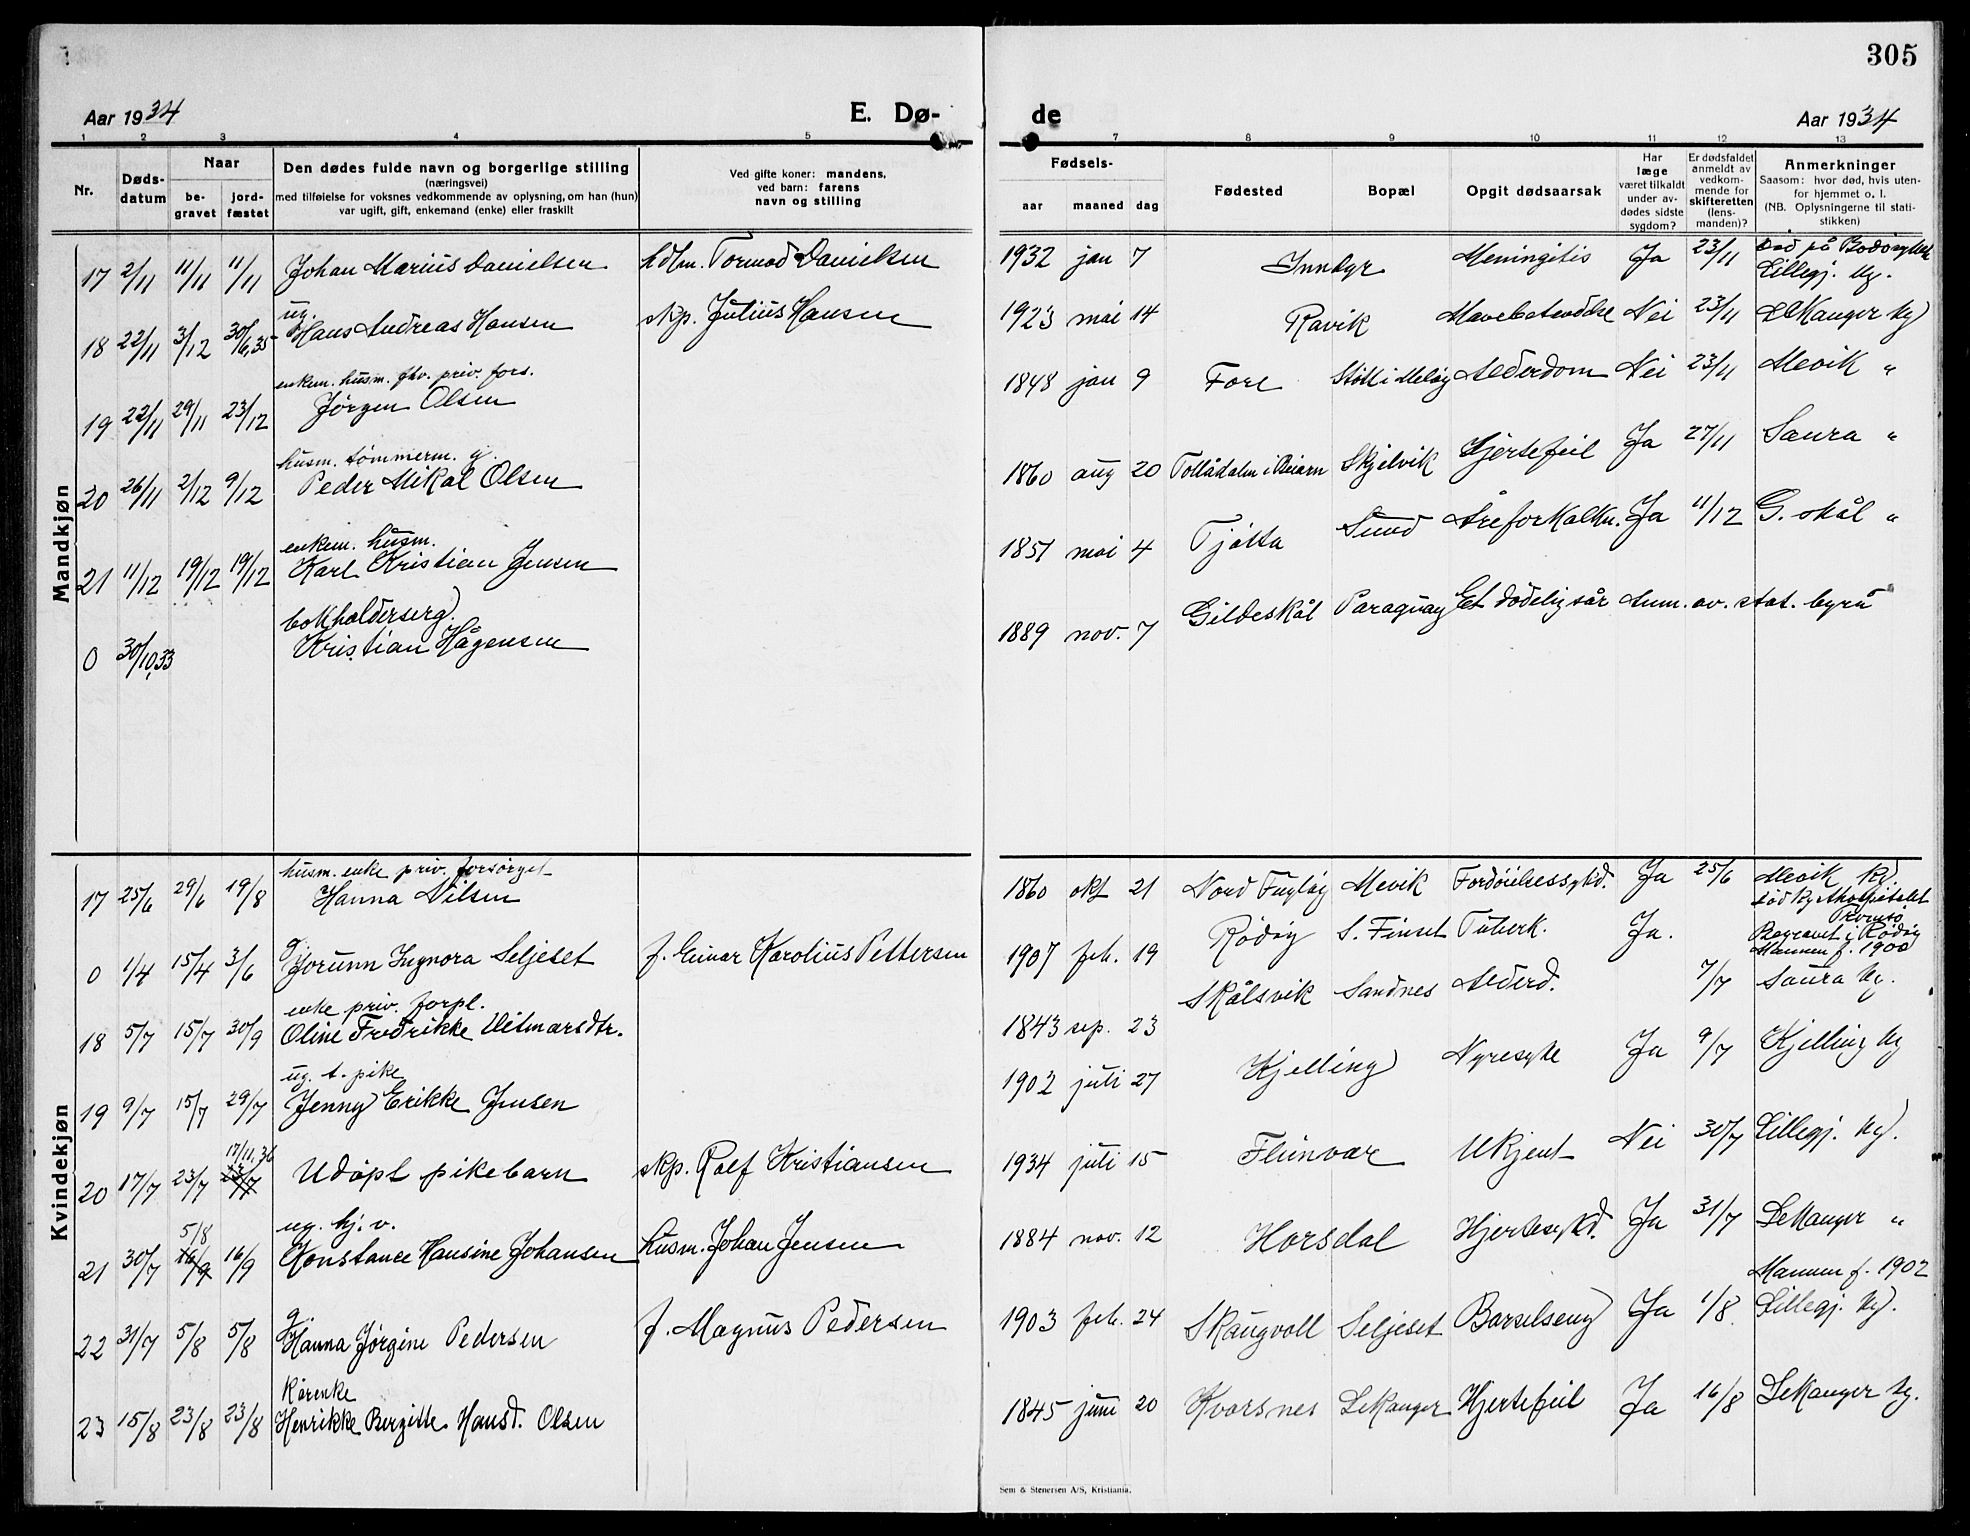 305
Aar 1934
E. Dø- de
Aar 1934
1 2 3 4 5 7 8 9 10 11 12 13
Nr.
Døds-
datum
Naar
be-
gravet
jord-
fæstet
Den dødes fulde navn og borgerlige stilling
(næringsvei)
med tilføielse for voksnes vedkommende av oplysning, om han (hun)
var ugift, gift, enkemand (enke) eller fraskilt
Ved gifte koner: mandens,
ved barn: farens
navn og stilling
Fødsels-
aar maaned dag
Fødested
Bopæl
Opgit dødsaarsak
Har
læge
været tilkaldt
under av-
dødes sidste
sygdom?
Er dødsfaldet
anmeldt av
vedkom-
mende for
skifteretten
(lens-
manden)?
Anmerkninger
Saasom: hvor død, hvis uten-
for hjemmet o. l.
(NB. Oplysningerne til stati-
stikken)
Mandkjøn
17 2/11 11/11 11/11 Johan Marius Danielsen hdlm. Tormod Danielsen 1932 jan 7 Inndyr Meningitis Ja 23/11 Død på Bodø sykeh
Lillegj. kg.
ug.
18 22/11 3/12 30/6,35 Hans Andreas Hansen skp. Julius Hansen 1923 mai 14 Ravik Nei 23/11
enkem. husm. fhv. priv. fors.
19 22/11 29/11 23/12 Jørgen Olsen 1848 jan 9 Fore Støtt i Meløy Alderdom Nei 23/11 Mevik "
husm. tømmerm. g.
20 26/11 2/12 9/12 Peder Mikal Olsen 1860 aug 20 Tollådalen i Beiarn Skjelvik Hjertefeil Ja 27/11 Saura "
enkem. husm.
21 11/12 19/12 19/12 Karl Kristian Jensen 1851 mai 4 Tjøtta Sund Åreforkalkn. Ja 11/12 G. skål "
bokholder
0 30/10,33 Kristian Hågensen 1889 nov. 7 Gildeskål Paraguay Et dødelig sår Anm. av. stat. byrå
Kvindekjøn
husm. enke priv. forsørget
17 25/6 29/6 19/8 Hanna Nilsen 1860 okt 21 Nord Fugløy Mevik Fordøielsessykd. Ja 25/6 Mevik kg.
g.
0 1/4 15/4 3/6 Jorunn Ingnora Seljeset f. Einar Karolius Pettersen 1907 feb. 19 Rødøy S. Finset Tuberk. Ja.
Begravet i Rødøy
Mannen f. 1900
enke priv. forpl.
18 5/7 15/7 30/9 Oline Fredrikke Ditmarsdtr. 1843 sep. 23 Skålsvik Sandnes Alderd. 7/7 Saura kg.
ug. t. pike
19 9/7 15/7 29/7 Jenny Erikke Jensen 1902 juli 27 Kjelling Nyresyke Ja 9/7 Kjelling kg
17/11,36
20 17/7 23/7 23/7 Udøpt pikebarn skp. Rolf Kristiansen 1934 juli 15 Fleinvær Ukjent Nei 30/7 Lillegj. kg.
5/8 ug. hj. v.
21 30/7 16/9 16/9 Konstance Hansine Johansen husm. Johan Jensen 1884 nov. 12 Horsdal Hjertesykd. Ja 31/7 Lekanger "
Mannen f. 1902
g.
22 31/7 5/8 5/8 Hanna Jørgine Pedersen f. Magnus Pedersen 1903 feb. 24 Skaugvoll Seljeset Barselseng Ja 1/8 Lillegj. kg.
kårenke
23 15/8 23/8 23/8 Henrikke Bergitte Hansd. Olsen 1845 juni 20 Kvarsnes Lekanger Hjertefeil Ja 16/8 Lekanger kg.
Sem & Stenersen A/S, Kristiania.